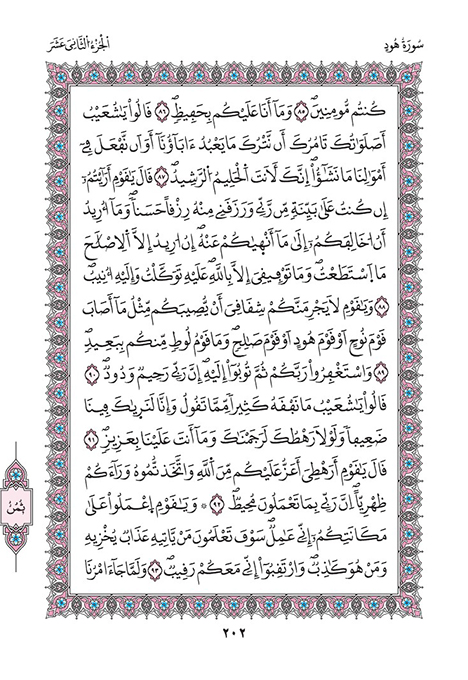 اَلْجُزْءُ الثَّانِيَ عَشَرَ
سُورَةُ هُودٍ
كُنتُم مُّومِنِينَۖ ٨٥ وَمَآ أَنَا عَلَيْكُم بِحَفِيظٖۖ ٨٦ قَالُواْ يَٰشُعَيْبُ
أَصَلَوَٰتُكَ تَامُرُكَ أَن نَّتْرُكَ مَا يَعْبُدُ ءَابَآؤُنَآ أَوَ اَن نَّفْعَلَ فِےٓ
أَمْوَٰلِنَا مَا نَشَٰٓؤُاْۖ إِنَّكَ لَأَنتَ اَلْحَلِيمُ اُلرَّشِيدُۖ ٨٧ قَالَ يَٰقَوْمِ أَرَٰٓيْتُمُۥٓ
إِن كُنتُ عَلَىٰ بَيِّنَةٖ مِّن رَّبِّے وَرَزَقَنِے مِنْهُ رِزْقاً حَسَناٗۖ وَمَآ أُرِيدُ
أَنُ اخَالِفَكُمُۥٓ إِلَىٰ مَآ أَنْهَىٰكُمْ عَنْهُۖ إِنُ ارِيدُ إِلَّا اَلِاصْلَٰحَ
مَا اَسْتَطَعْتُۖ وَمَا تَوْفِيقِيَ إِلَّا بِاللَّهِۖ عَلَيْهِ تَوَكَّلْتُ وَإِلَيْهِ أُنِيبُۖ
٨٨ وَيَٰقَوْمِ لَا يَجْرِمَنَّكُمْ شِقَاقِيَ أَنْ يُّصِيبَكُم مِّثْلُ مَآ أَصَابَ
قَوْمَ نُوحٍ اَوْ قَوْمَ هُودٍ اَوْ قَوْمَ صَٰلِحٖۖ وَمَا قَوْمُ لُوطٖ مِّنكُم بِبَعِيدٖۖ
٨٩ وَاسْتَغْفِرُواْ رَبَّكُمْ ثُمَّ تُوبُوٓاْ إِلَيْهِۖ إِنَّ رَبِّے رَحِيمٞ وَدُودٞۖ ٩٠
قَالُواْ يَٰشُعَيْبُ مَا نَفْقَهُ كَثِيراٗ مِّمَّا تَقُولُ وَإِنَّا لَنَرَىٰكَ فِينَا
ضَعِيفاٗۖ وَلَوْلَا رَهْطُكَ لَرَجَمْنَٰكَۖ وَمَآ أَنتَ عَلَيْنَا بِعَزِيزٖۖ ٩١
قَالَ يَٰقَوْمِ أَرَهْطِيَ أَعَزُّ عَلَيْكُم مِّنَ اَللَّهِ وَاتَّخَذتُّمُوهُ وَرَآءَكُمْ
ظِهْرِيّاًۖ اِنَّ رَبِّے بِمَا تَعْمَلُونَ مُحِيطٞۖ ٩٢ ۞ وَيَٰقَوْمِ اِعْمَلُواْ عَلَىٰ
مَكَانَتِكُمُۥٓ إِنِّے عَٰمِلٞۖ سَوْفَ تَعْلَمُونَ مَنْ يَّاتِيهِ عَذَابٞ يُخْزِيهِ
وَمَنْ هُوَ كَٰذِبٞۖ وَارْتَقِبُوٓاْ إِنِّے مَعَكُمْ رَقِيبٞۖ ٩٣ وَلَمَّا جَآءَ امْرُنَا
ثُمُنْ
٢٠٢